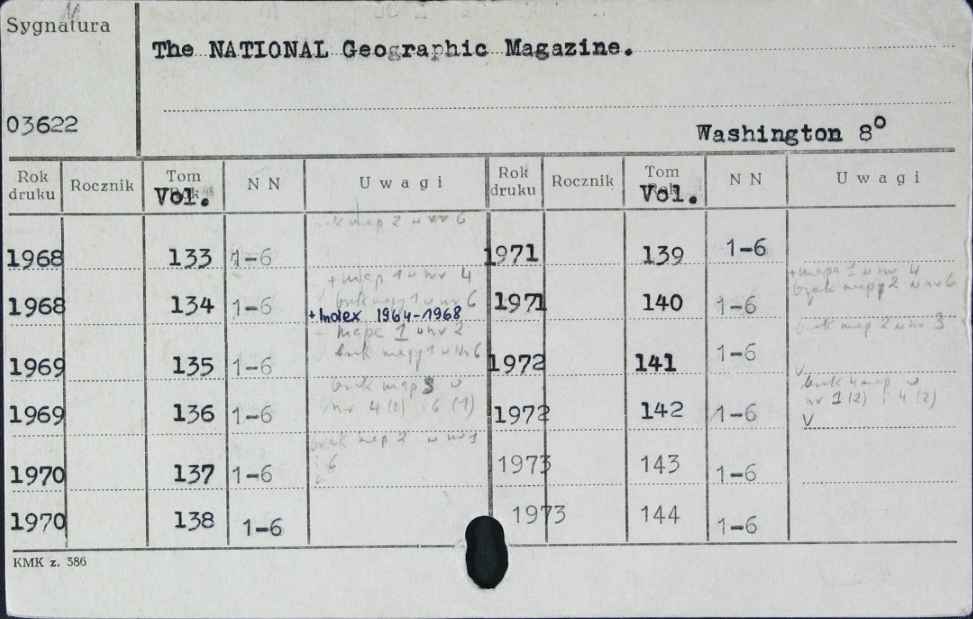 Sygnatura
The NATIONAL Geographic Magazine.
03622
Washington 8°
Rok druku Rocznik Tom Vol. N N Uwagi Rok druku Rocznik Tom Vol. N N Uwagi
brak map 2 w nr 6
1968 133 1-6 1971 139 1-6
+ map 1 w nr 4 + mapa 1 w nr 4
brak mapy 1 w nr 6 brak mapy 2 w nr 6
1968 134 1-6 1971 140 1-6
+ Index 1964-1968
+ mapa 1 w nr 2 brak map 2 w nr 3
brak mapy 1 w nr 6
1969 135 1-6 1972 141 1-6 V
brak map 3 w brak 4 map w
nr 4 (2) i 6 (1) nr 1 (2) i 4 (2)
1969 136 1-6 1972 142 1-6 V
brak map 2 w nr
6
1970 137 1-6 1973 143 1-6
1970 138 1-6 1973 144 1-6
KMK z. 386